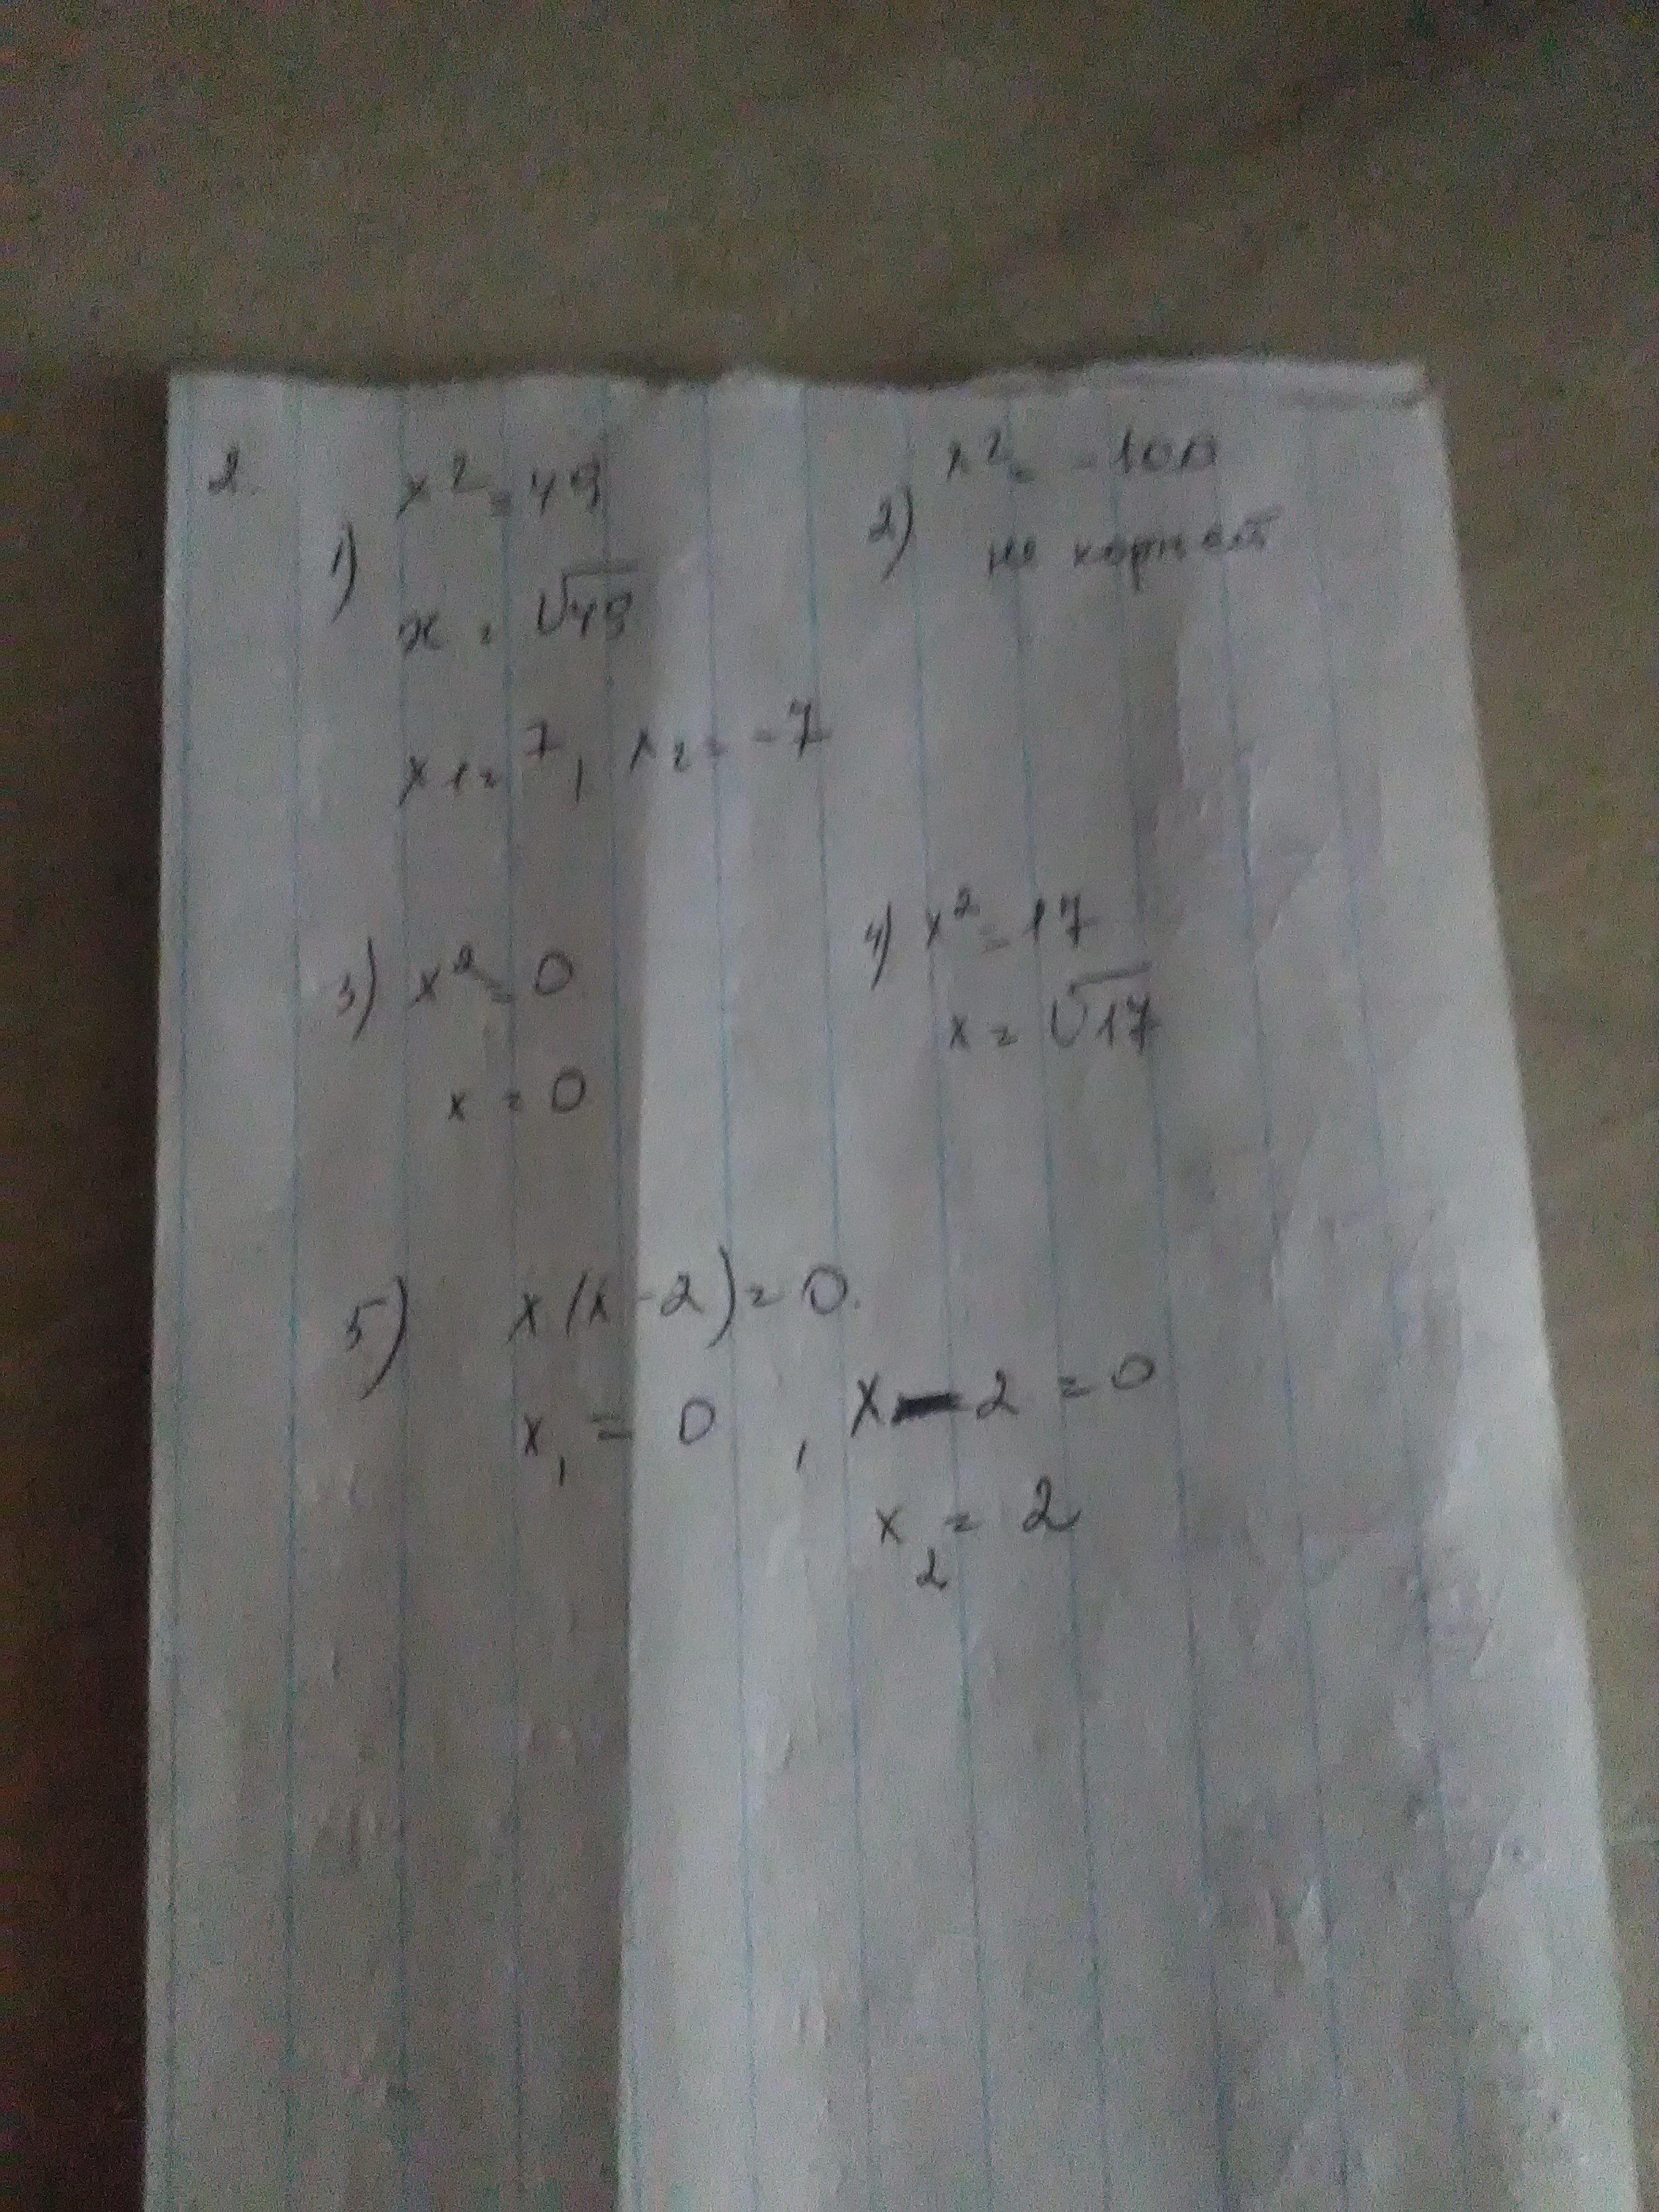 2.
1) x² = 49
x = √49
x₁ = 7, x₂ = -7
2) x² = -100
не корней
3) x² = 0
x = 0
4) x² = 17
x = √17
5) x(x-2) = 0.
x₁ = 0, x - 2 = 0
x₂ = 2